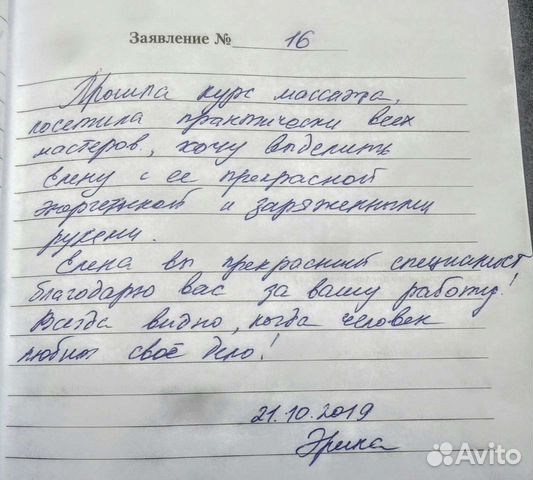 Заявление № 16
Прошла курс массажа,
посетила практически всех
мастеров, хочу выделить
Елену с ее прекрасной
энергетикой и заряженными
руками.
Елена вы прекрасный специалист
благодарю вас за вашу работу!
Всегда видно, когда человек
любит своё дело!
21.10.2019
Эрика
Avito